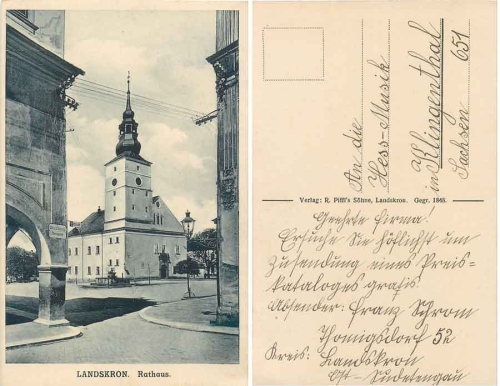 LANDSKRON. Rathaus.
An die
Hess-Musik
in Klingenthal
Sachsen 651
Verlag: R. Piffl's Söhne, Landskron. Gegr. 1848.
Geehrte Firma!
Ersuche Sie höflichst um
Zusendung eines Preis-
kataloges gratis
Absender: Franz Schrom
Thomigsdorf 52
Kreis: Landskron
Ost-Sudetengau